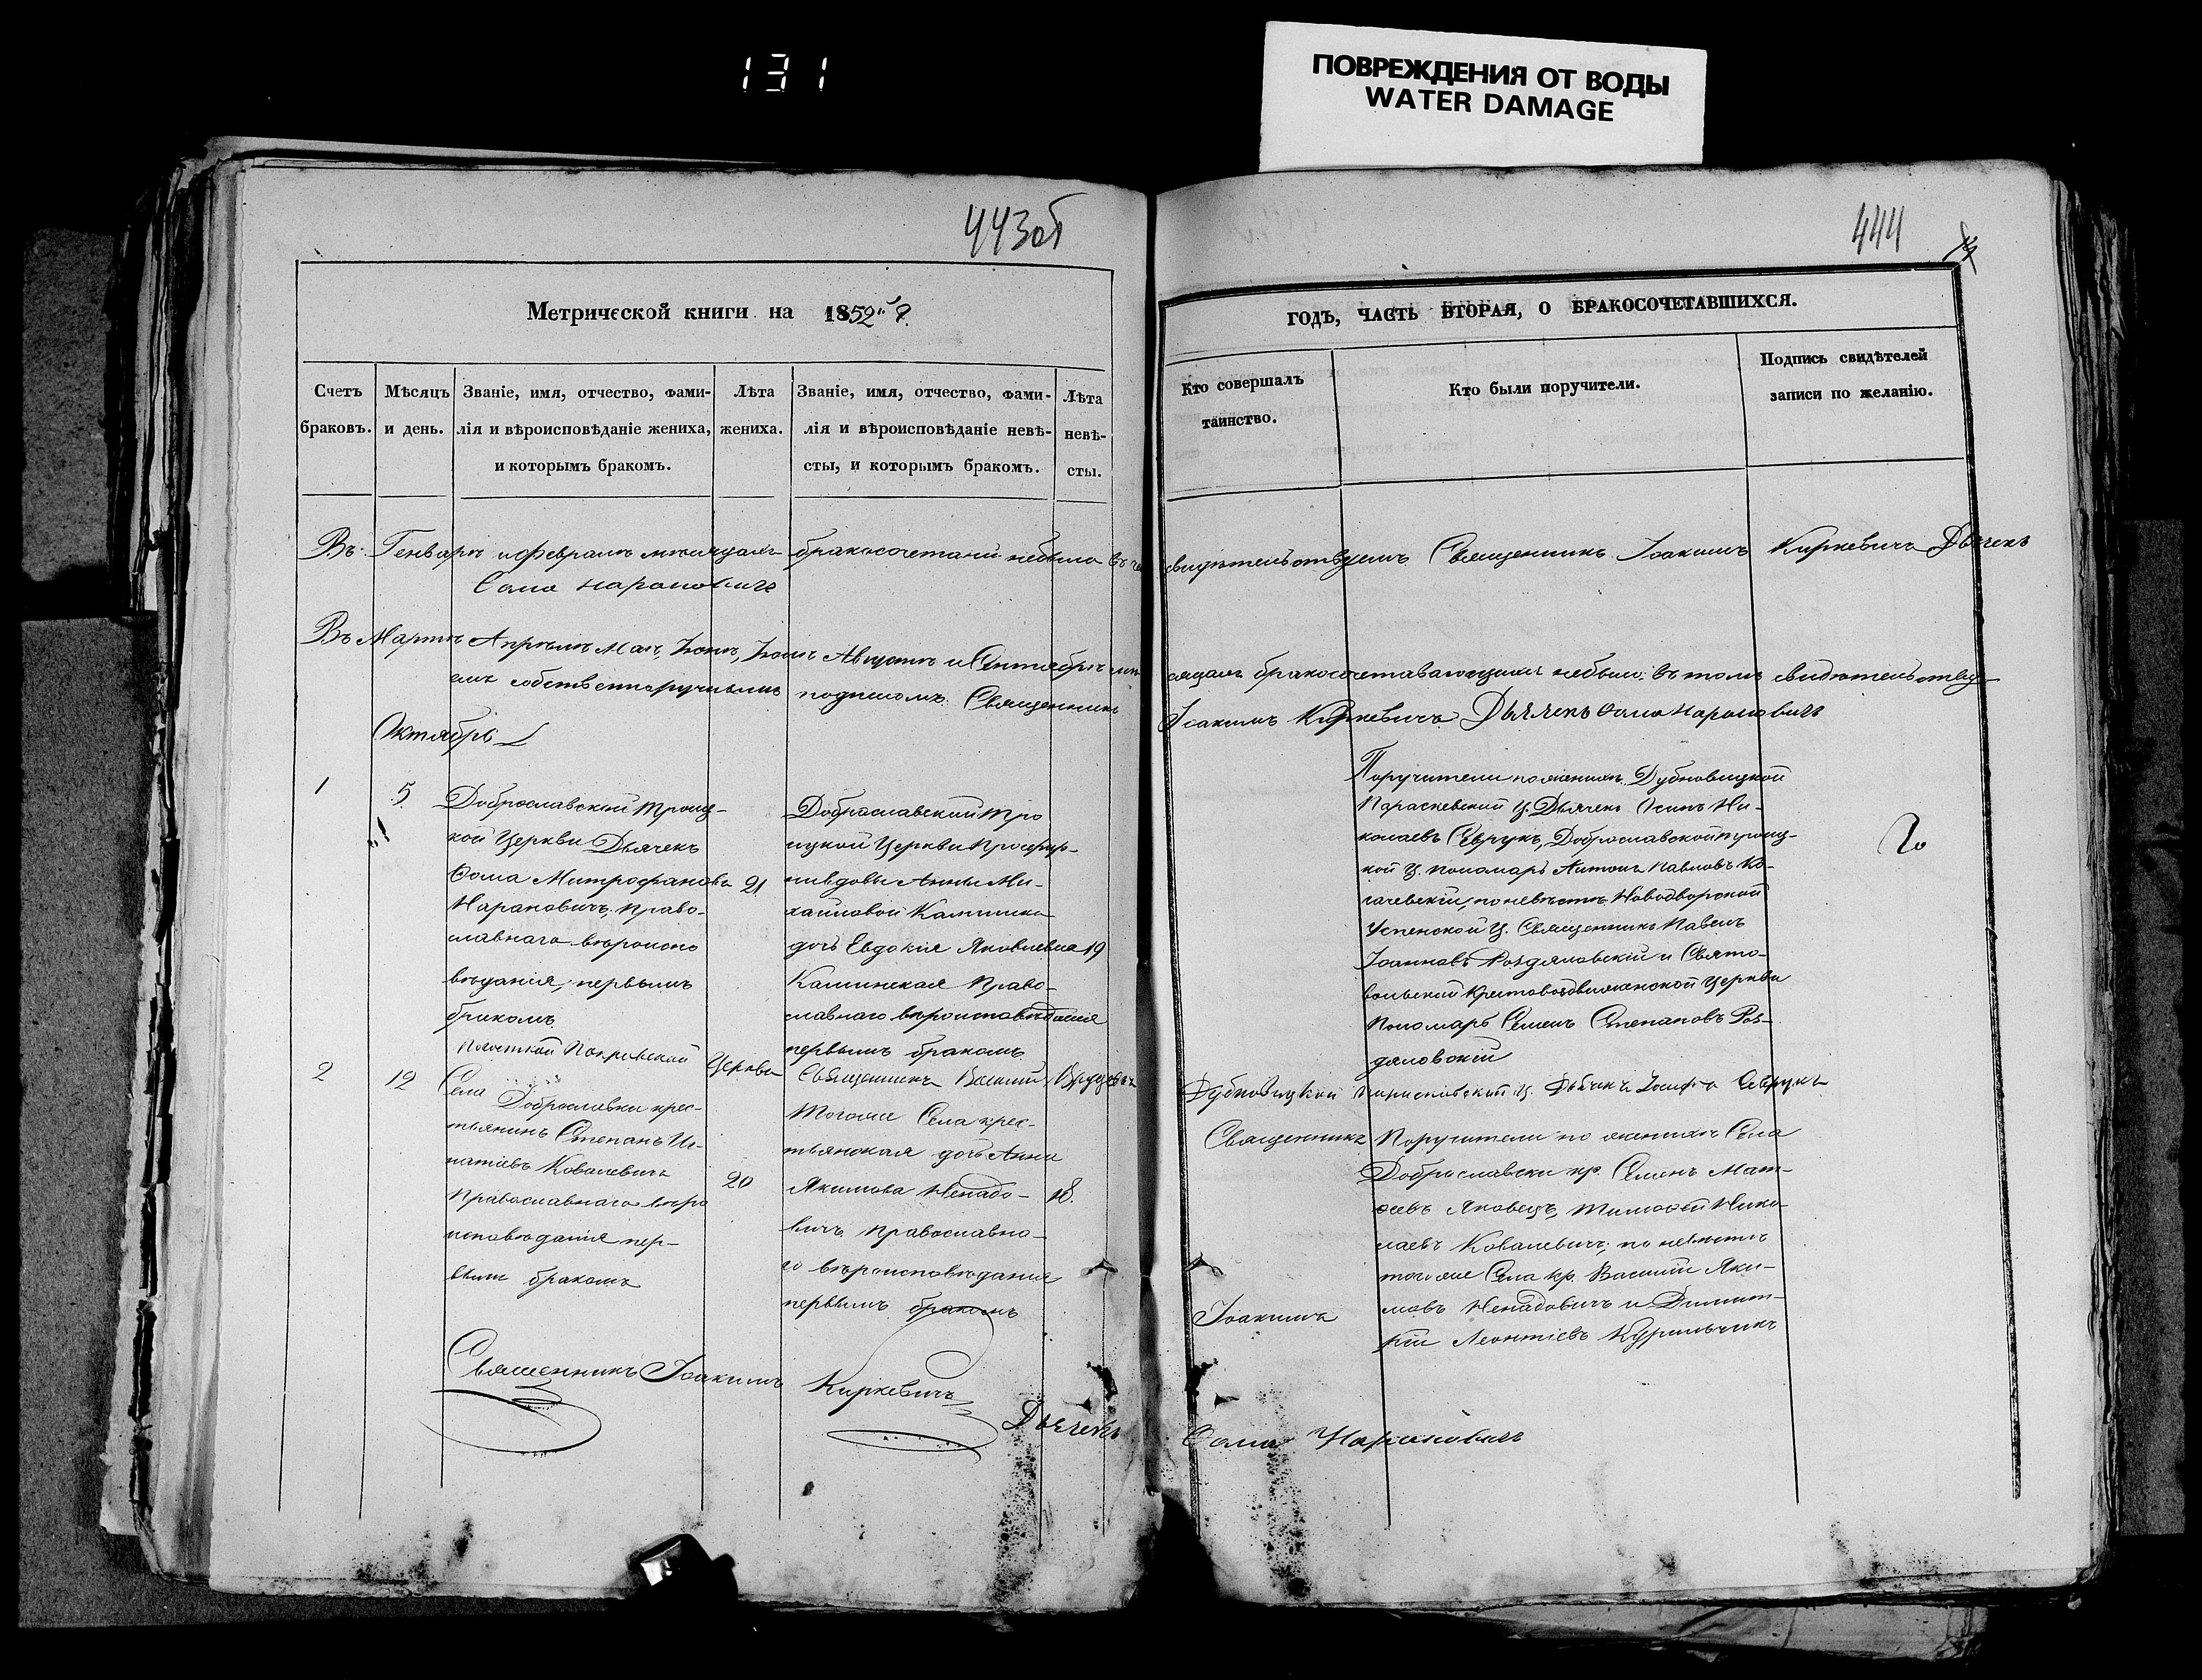 131
ПОВРЕЖДЕНИЯ ОТ ВОДЫ
WATER DAMAGE
443об
Метрической книги на 1852й г.
Счетъ браковъ.
Мѣсяцъ и день.
Званіе, имя, отчество, фами-
лія и вѣроисповѣданіе жениха,
и которымъ бракомъ.
Лѣта жениха.
Званіе, имя, отчество, фами-
лія и вѣроисповѣданіе невѣ-
сты, и которымъ бракомъ.
Лѣта невѣ-
сты.
444
ГОДЪ, ЧАСТЬ ВТОРАЯ, О БРАКОСОЧЕТАВШИХСЯ.
Кто совершалъ
таинство.
Кто были поручители.
Подпись свидѣтелей
записи по желанію.
Въ Генварѣ и Февралѣ мѣсяцахъ бракосочетаній небыло въ свидѣтельствуемъ Священникъ Іоакимъ Киркевичъ Дьячекъ
Ѳома Нарановичъ
Въ Мартѣ Апрѣлѣ Маѣ, Іюнѣ, Іюлѣ Августѣ и Сентябрѣ мѣ
сяцахъ бракосочетавающихся небыло; въ томъ свидѣтельству
емъ собственноручнымъ подписомъ. Священникъ
Іоакимъ Киркевичъ Дьячекъ Ѳома Нарановичъ
Октябрь
1
5
Доброславской Троиц-
кой Церкви Дьячекъ
Ѳома Митрофановъ
Нарановичъ, право-
славнаго вѣроиспо
вѣданія, первымъ
бракомъ
21
Доброславской Тро
ицкой Церкви Просфир-
ни вдовы Анны Ми-
хайловой Калинско
дочь Евдокія Яковлевна
Калинская Право-
славнаго вѣроисповѣданія
первымъ бракомъ
19
Поручители по женихѣ Дубновицкой
Параскевской Ц. Дьячекъ Осипъ Ни-
колаевъ Севрукъ, Доброславской Троиц-
кой Ц. пономарь Антонъ Павловъ Ко-
по невѣстѣ Новодворской
Успенской Ц. Священникъ Павелъ
Іоанновъ Роздяловскій и Свято-
вольской Крестовоздвиженской Церкви
Пономарь Семенъ Степановъ Роз-
дяловскій
Покровской Церкви Священникъ Василій
Дубновицкой Ц. Дьячекъ Іосифъ Севрукъ
2
12
Села Доброславки крес-
тьянинъ Степанъ Иг-
натіевъ Ковалевичъ
Православнаго вѣро
исповѣданія пер-
вымъ бракомъ
20
Тогоже Села крес-
тьянская дочь Анна
Якимова Ненадо-
вичъ Православна-
го вѣроисповѣданія
первымъ бракомъ
18.
Священникъ
Іоакимъ
Поручители по женихѣ Села
Доброславки кр. Семенъ Мат-
ѳеевъ Яковецъ, Тимоѳей Нико-
лаевъ Ковалевичъ; по невѣстѣ
тогоже Села кр. Василій Яки-
мовъ Ненадовичъ и Димит-
рій Леонтіевъ Курильчикъ
Священникъ Іоакимъ Киркевичъ
Дьячекъ Ѳома Нарановичъ